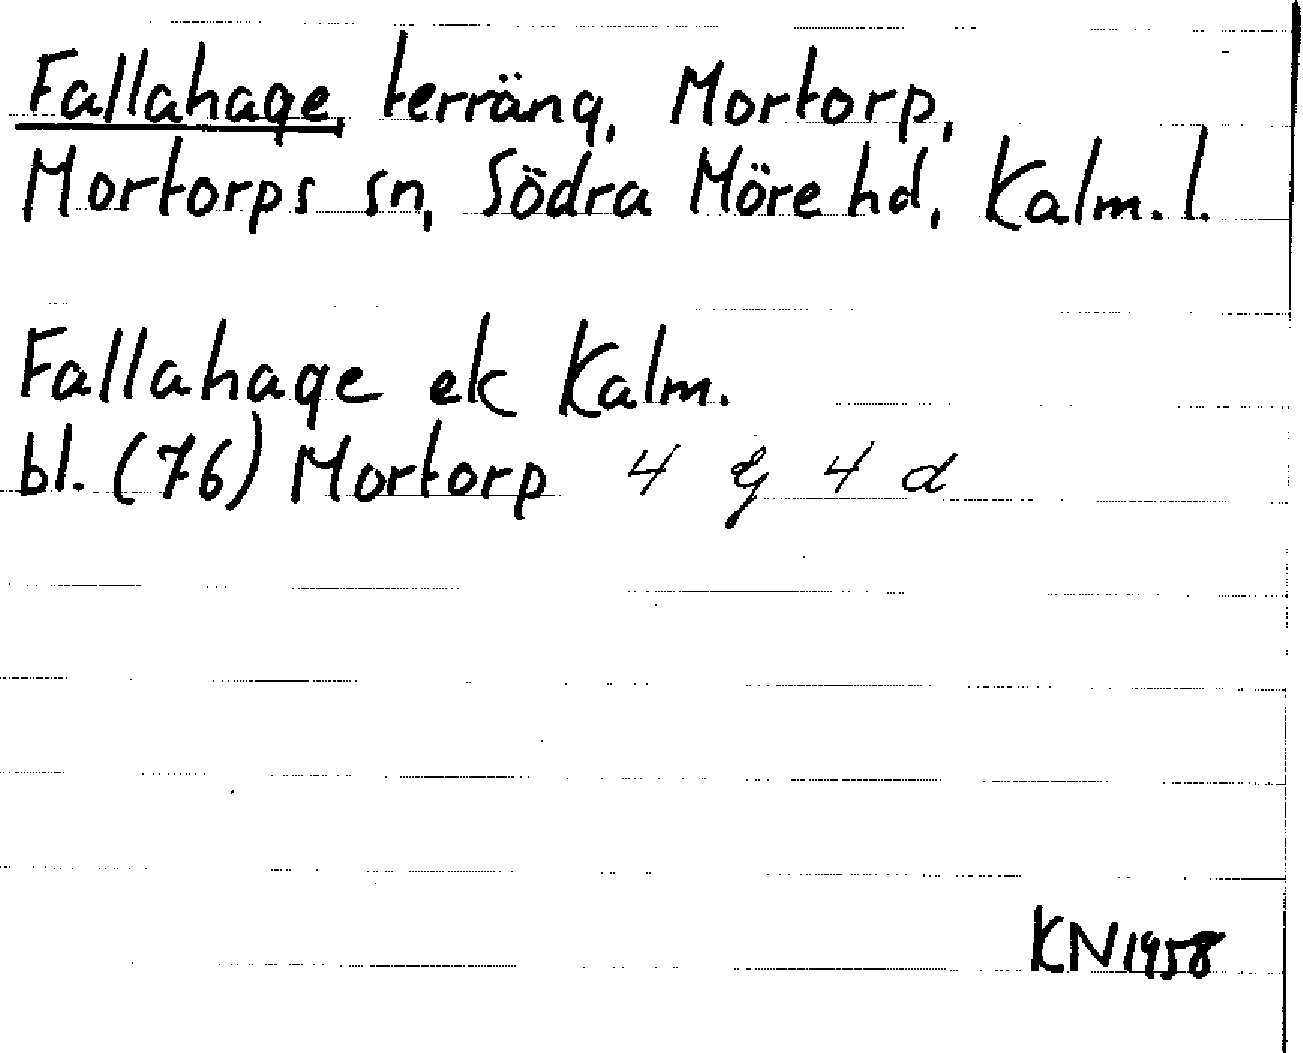 Fallahage, terräng, Mortorp,
Mortorps sn, Södra Möre hd, Kalm. l.
Fallahage ek Kalm.
bl. (76) Mortorp 4 G 4 d
KN 1958